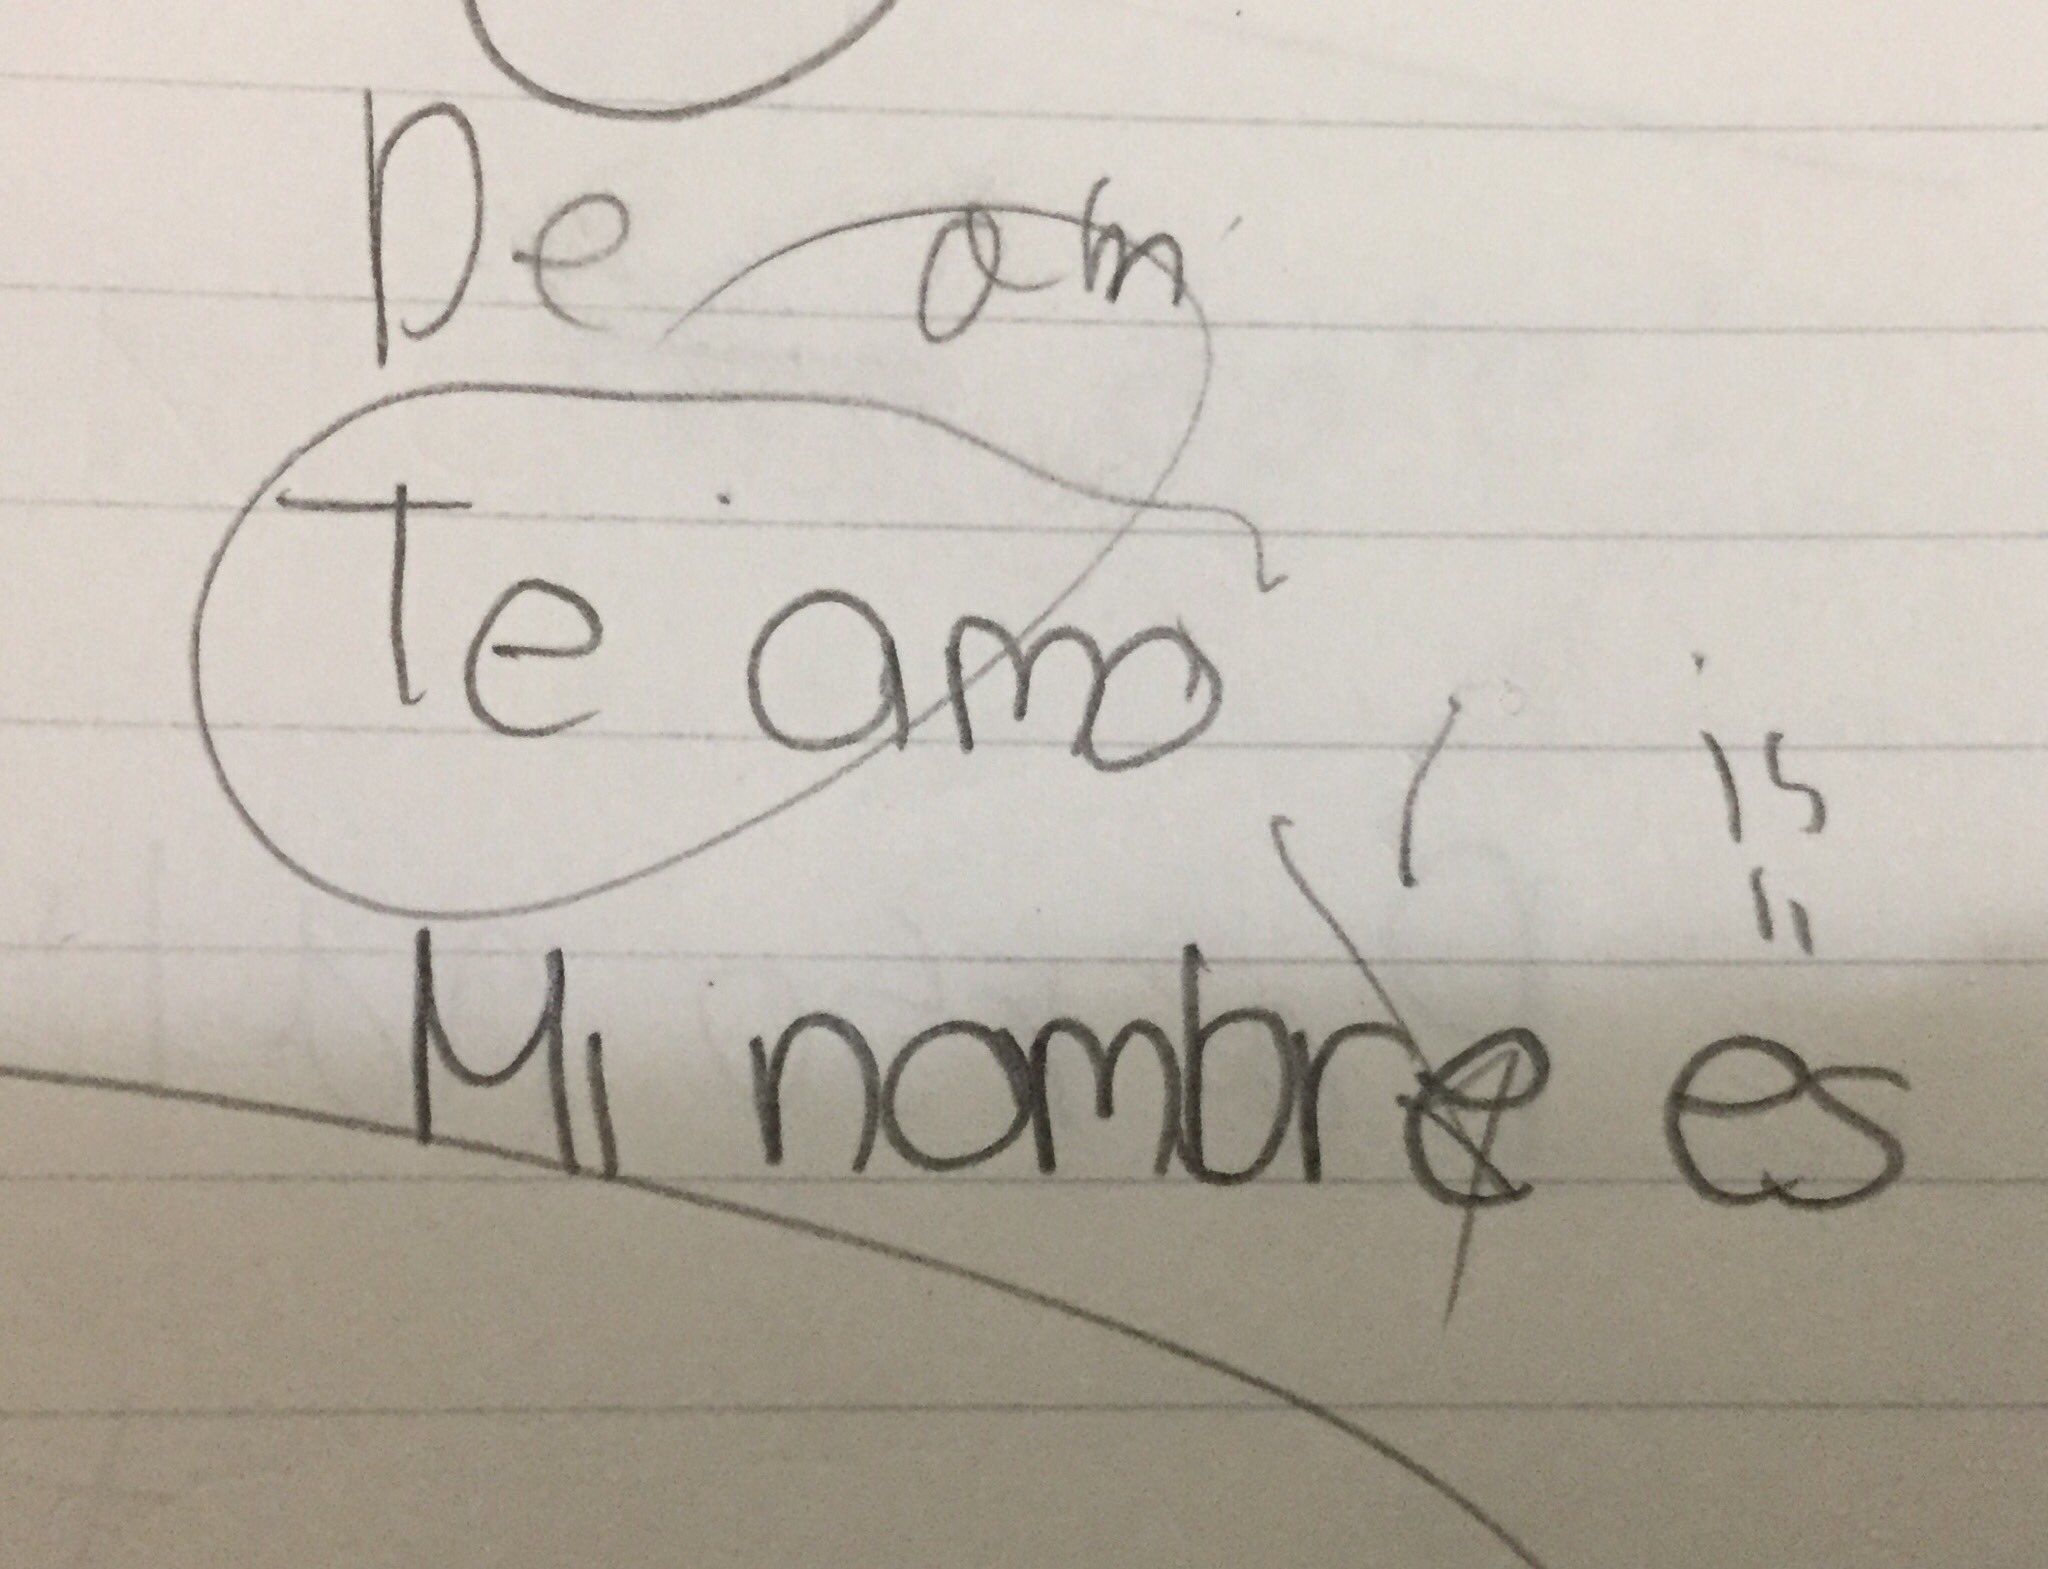 De am
Te amo
is
Mi nombre es